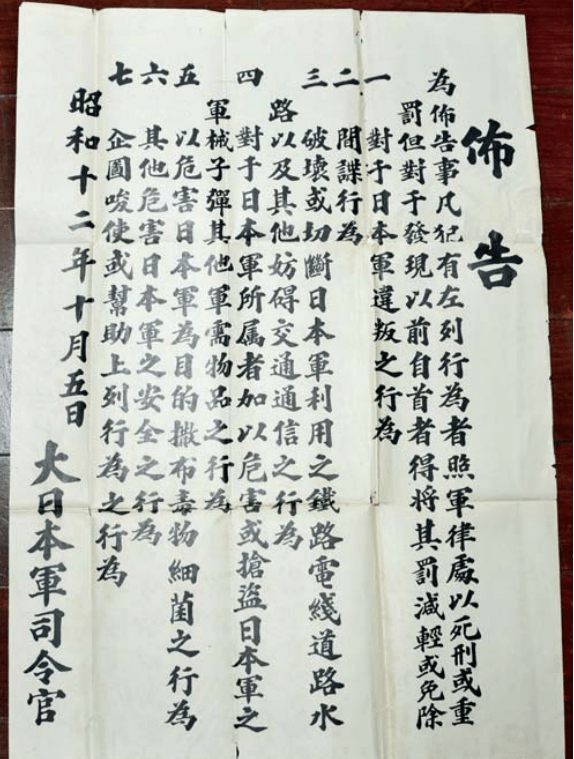 佈告
為佈告事凡犯有左列行為者照軍律處以死刑或重
罰但對于發現以前自首者得將其罰減輕或免除
一 對于日本軍違叛之行為
二 間諜行為
三 破壞或切斷日本軍利用之鐵路電綫道路水
路以及其他妨碍交通通信之行為
四 對于日本軍所属者加以危害或搶盜日本軍之
軍械子彈其他軍需物品之行為
五 以危害日本軍為目的撒布毒物細菌之行為
六 其他危害日本軍之安全之行為
七 企圖唆使或幫助上列行為之行為
昭和十二年十月五日
大日本軍司令官